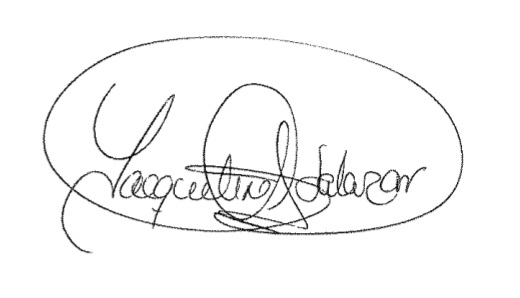 Yacqueline Salazar